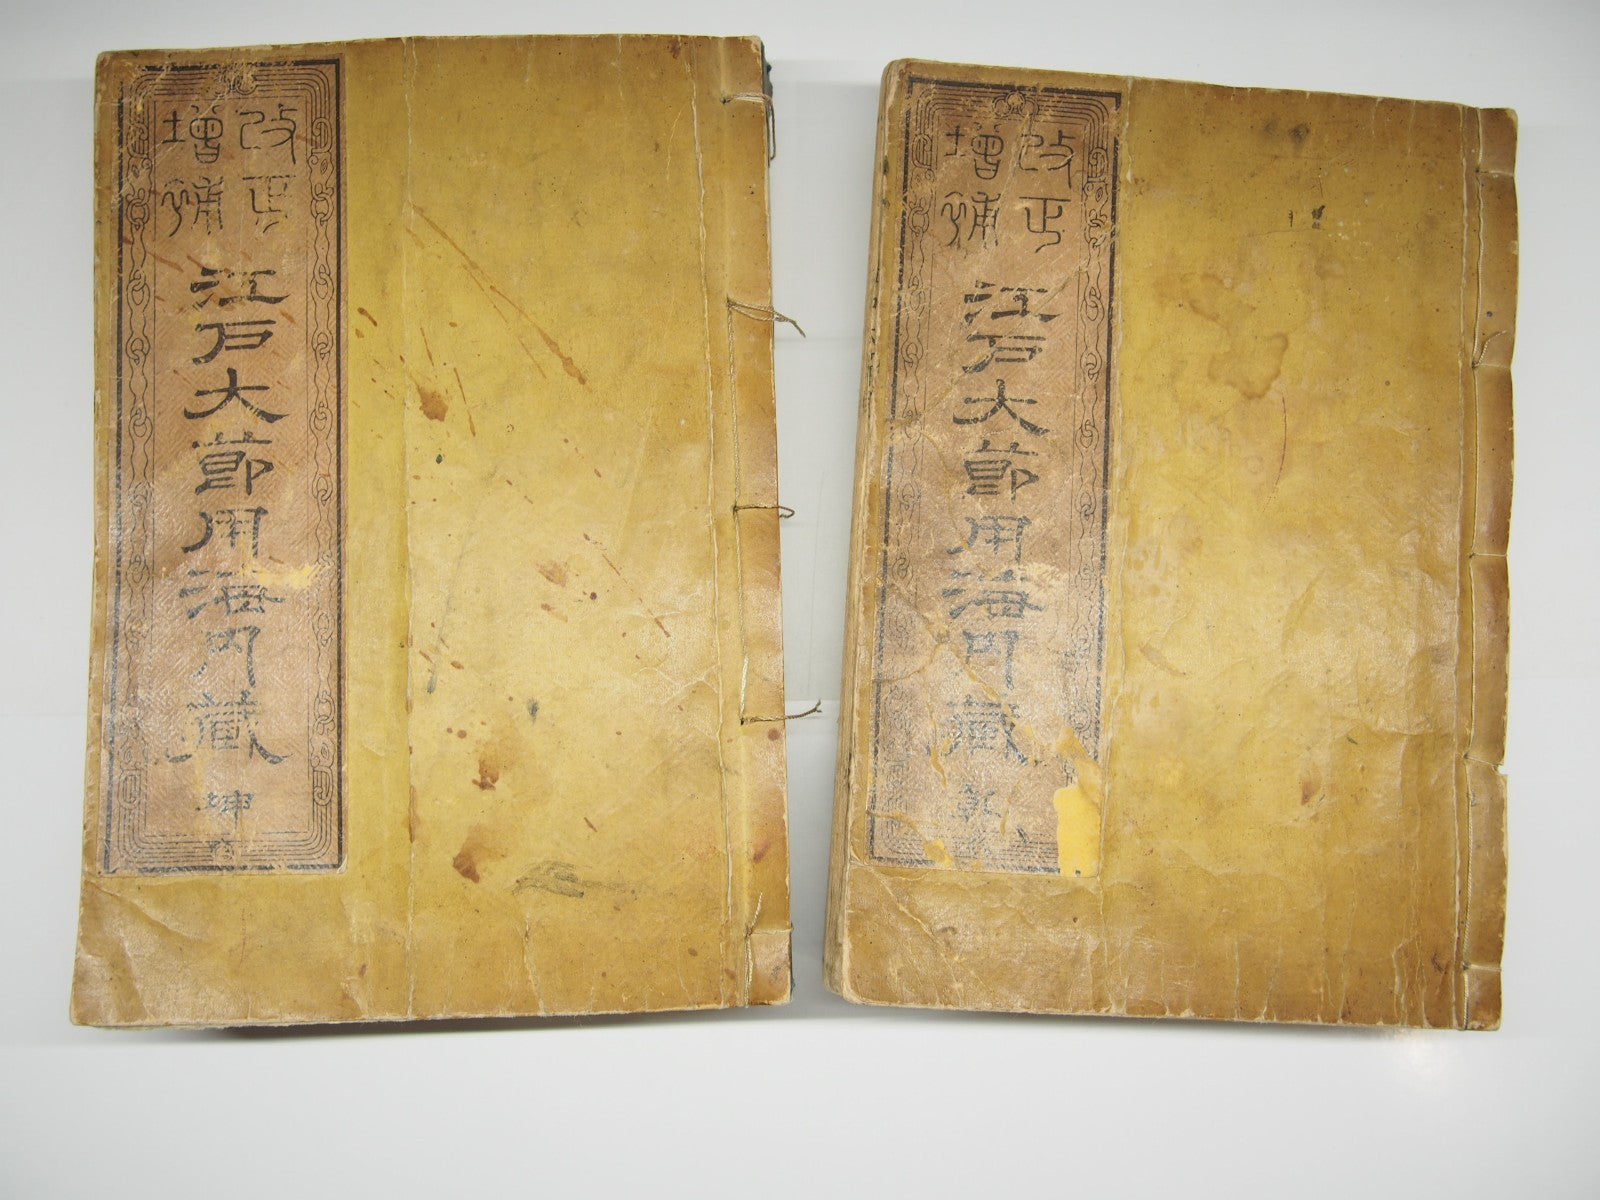 改正
増補
江戸大節用海内蔵
坤
改正
増補
江戸大節用海内蔵
乾